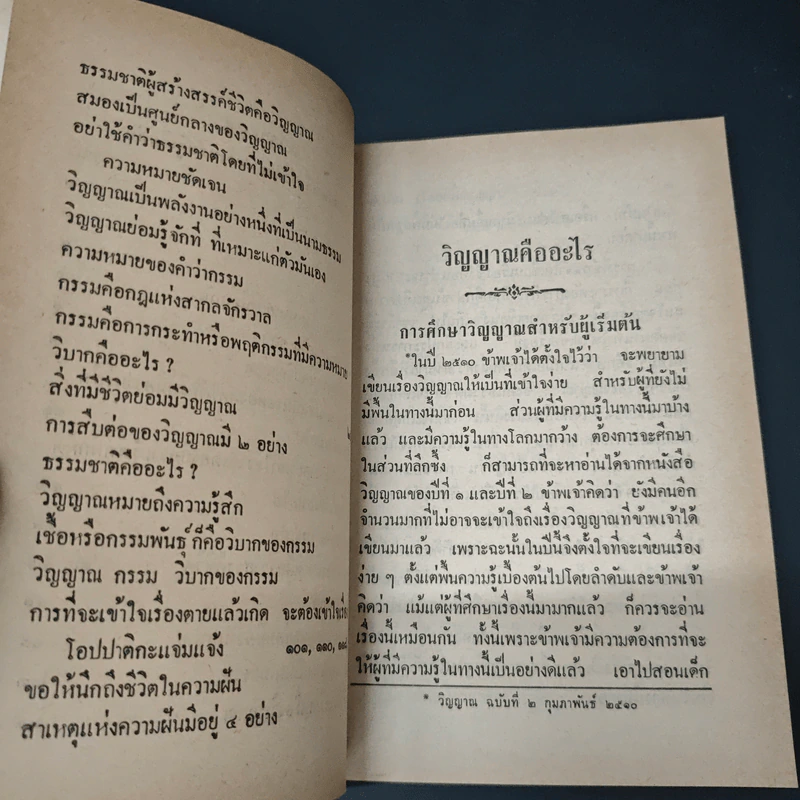 ธรรมชาติผู้สร้างสรรค์ชีวิตคือวิญญาณ
สมองเป็นศูนย์กลางของวิญญาณ
อย่าใช้คำว่าธรรมชาติโดยที่ไม่เข้าใจ
ความหมายชัดเจน
วิญญาณเป็นพลังงานอย่างหนึ่งที่เป็นนามธรรม
วิญญาณย่อมรู้จักที่ ที่เหมาะแก่ตัวมันเอง
ความหมายของคำว่ากรรม
กรรมคือกฎแห่งสากลจักรวาล
กรรมคือการกระทำหรือพฤติกรรมที่มีความหมาย
วิบากคืออะไร ?
สิ่งที่มีชีวิตย่อมมีวิญญาณ
การสืบต่อของวิญญาณมี ๒ อย่าง
ธรรมชาติคืออะไร ?
วิญญาณหมายถึงความรู้สึก
เชื้อหรือกรรมพันธุ์ ก็คือวิบากของกรรม
วิญญาณ กรรม วิบากของกรรม
การที่จะเข้าใจเรื่องตายแล้วเกิด จะต้องเข้าใจ
โอปปาติกะแจ่มแจ้ง ๑๐๑, ๑๑๐,
ขอให้นึกถึงชีวิตในความฝัน
สาเหตุแห่งความฝันมีอยู่ ๔ อย่าง
วิญญาณคืออะไร
การศึกษาวิญญาณสำหรับผู้เริ่มต้น
*ในปี ๒๕๑๐ ข้าพเจ้าได้ตั้งใจไว้ว่า จะพยายาม
เขียนเรื่องวิญญาณให้เป็นที่เข้าใจง่าย สำหรับผู้ที่ยังไม่
มีพื้นในทางนี้มาก่อน ส่วนผู้ที่มีความรู้ในทางนี้มาบ้าง
แล้ว และมีความรู้ในทางโลกมากว้าง ต้องการจะศึกษา
ในส่วนที่ลึกซึ้ง ก็สามารถที่จะหาอ่านได้จากหนังสือ
วิญญาณของปีที่ ๑ และปีที่ ๒ ข้าพเจ้าคิดว่า ยังมีคนอีก
จำนวนมากที่ไม่อาจจะเข้าใจถึงเรื่องวิญญาณที่ข้าพเจ้าได้
เขียนมาแล้ว เพราะฉะนั้นในปีนี้จึงตั้งใจที่จะเขียนเรื่อง
ง่าย ๆ ตั้งแต่พื้นความรู้เบื้องต้นไปโดยลำดับและข้าพเจ้า
คิดว่า แม้แต่ผู้ที่ศึกษาเรื่องนี้มามากแล้ว ก็ควรจะอ่าน
เรื่องนี้เหมือนกัน ทั้งนี้เพราะข้าพเจ้ามีความต้องการที่จะ
ให้ผู้ที่มีความรู้ในทางนี้เป็นอย่างดีแล้ว เอาไปสอนเด็ก
* วิญญาณ ฉบับที่ ๒ กุมภาพันธ์ ๒๕๑๐